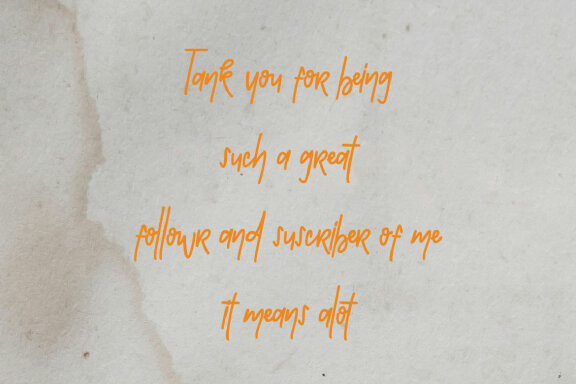 Tank you for being
such a great
followr and suscriber of me
it means alot